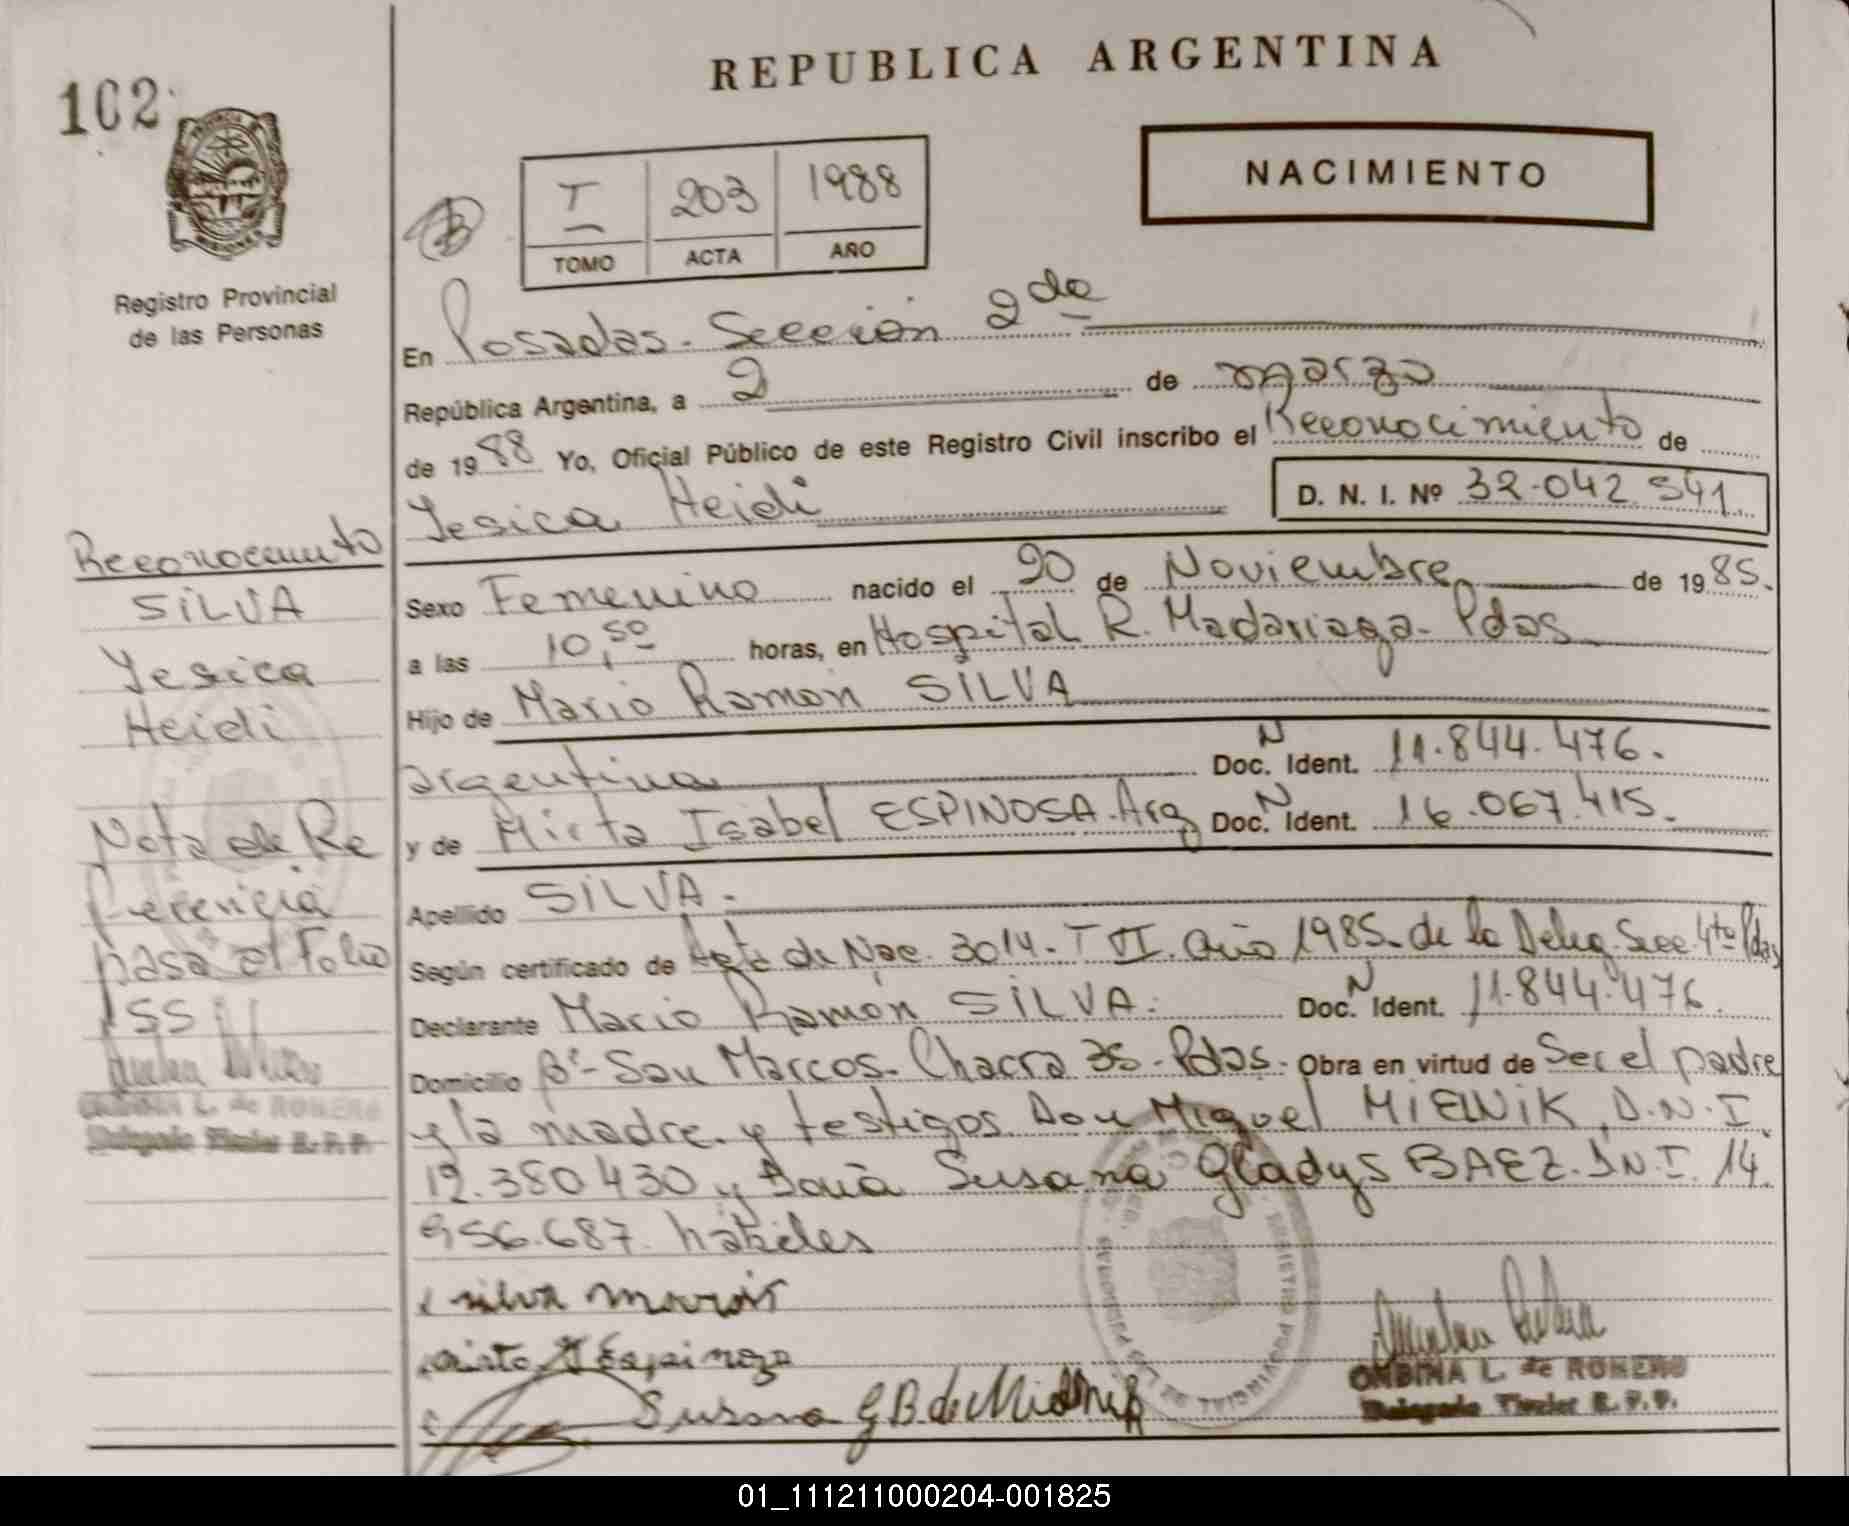 102
REPUBLICA ARGENTINA
NACIMIENTO
I 203 1988
TOMO ACTA AÑO
Registro Provincial
de las Personas
En Posadas. Sección 2da
República Argentina, a 2 de marzo
de 1988 Yo, Oficial Público de este Registro Civil inscribo el Reconocimiento de
Yesica Heidi D. N. I. Nº 32.042.541.
Sexo Femenino nacido el 20 de Noviembre de 1985.
a las 10,50 horas, en Hospital R. Madariaga. Pdas
Hijo de Mario Ramon SILVA
argentina Doc. N Ident. 11.844.476.
y de Mirta Isabel ESPINOSA. Arg Doc. N Ident. 16.067.415.
Apellido SILVA.
Según certificado de Acta de Nac. 3014. T VI. Año 1985. de la Deleg. Secc. 4ta Pdas
Declarante Mario Ramón SILVA. Doc. N Ident. 11.844.476.
Domicilio Bº San Marcos. Chacra 35. Pdas. Obra en virtud de Ser el padre
y la madre. y testigos Don Miguel MIELNIK, D.N.I.
12.380.430 y Doña Susana Gladys BAEZ. D.N.I. 14.
956.687. hábiles
silva
Espinoza
Susana G B. de
OMBINA L. de ROMERO
Delegado Titular R. P. P.
Reconocimiento
SILVA
Yesica
Heidi
Nota de Re
ferencia
pasa al Folio
155
OMBINA L. de ROMERO
Delegado Titular R. P. P.
REGISTRO PROVINCIAL DE LAS PERSONAS
01_111211000204-001825